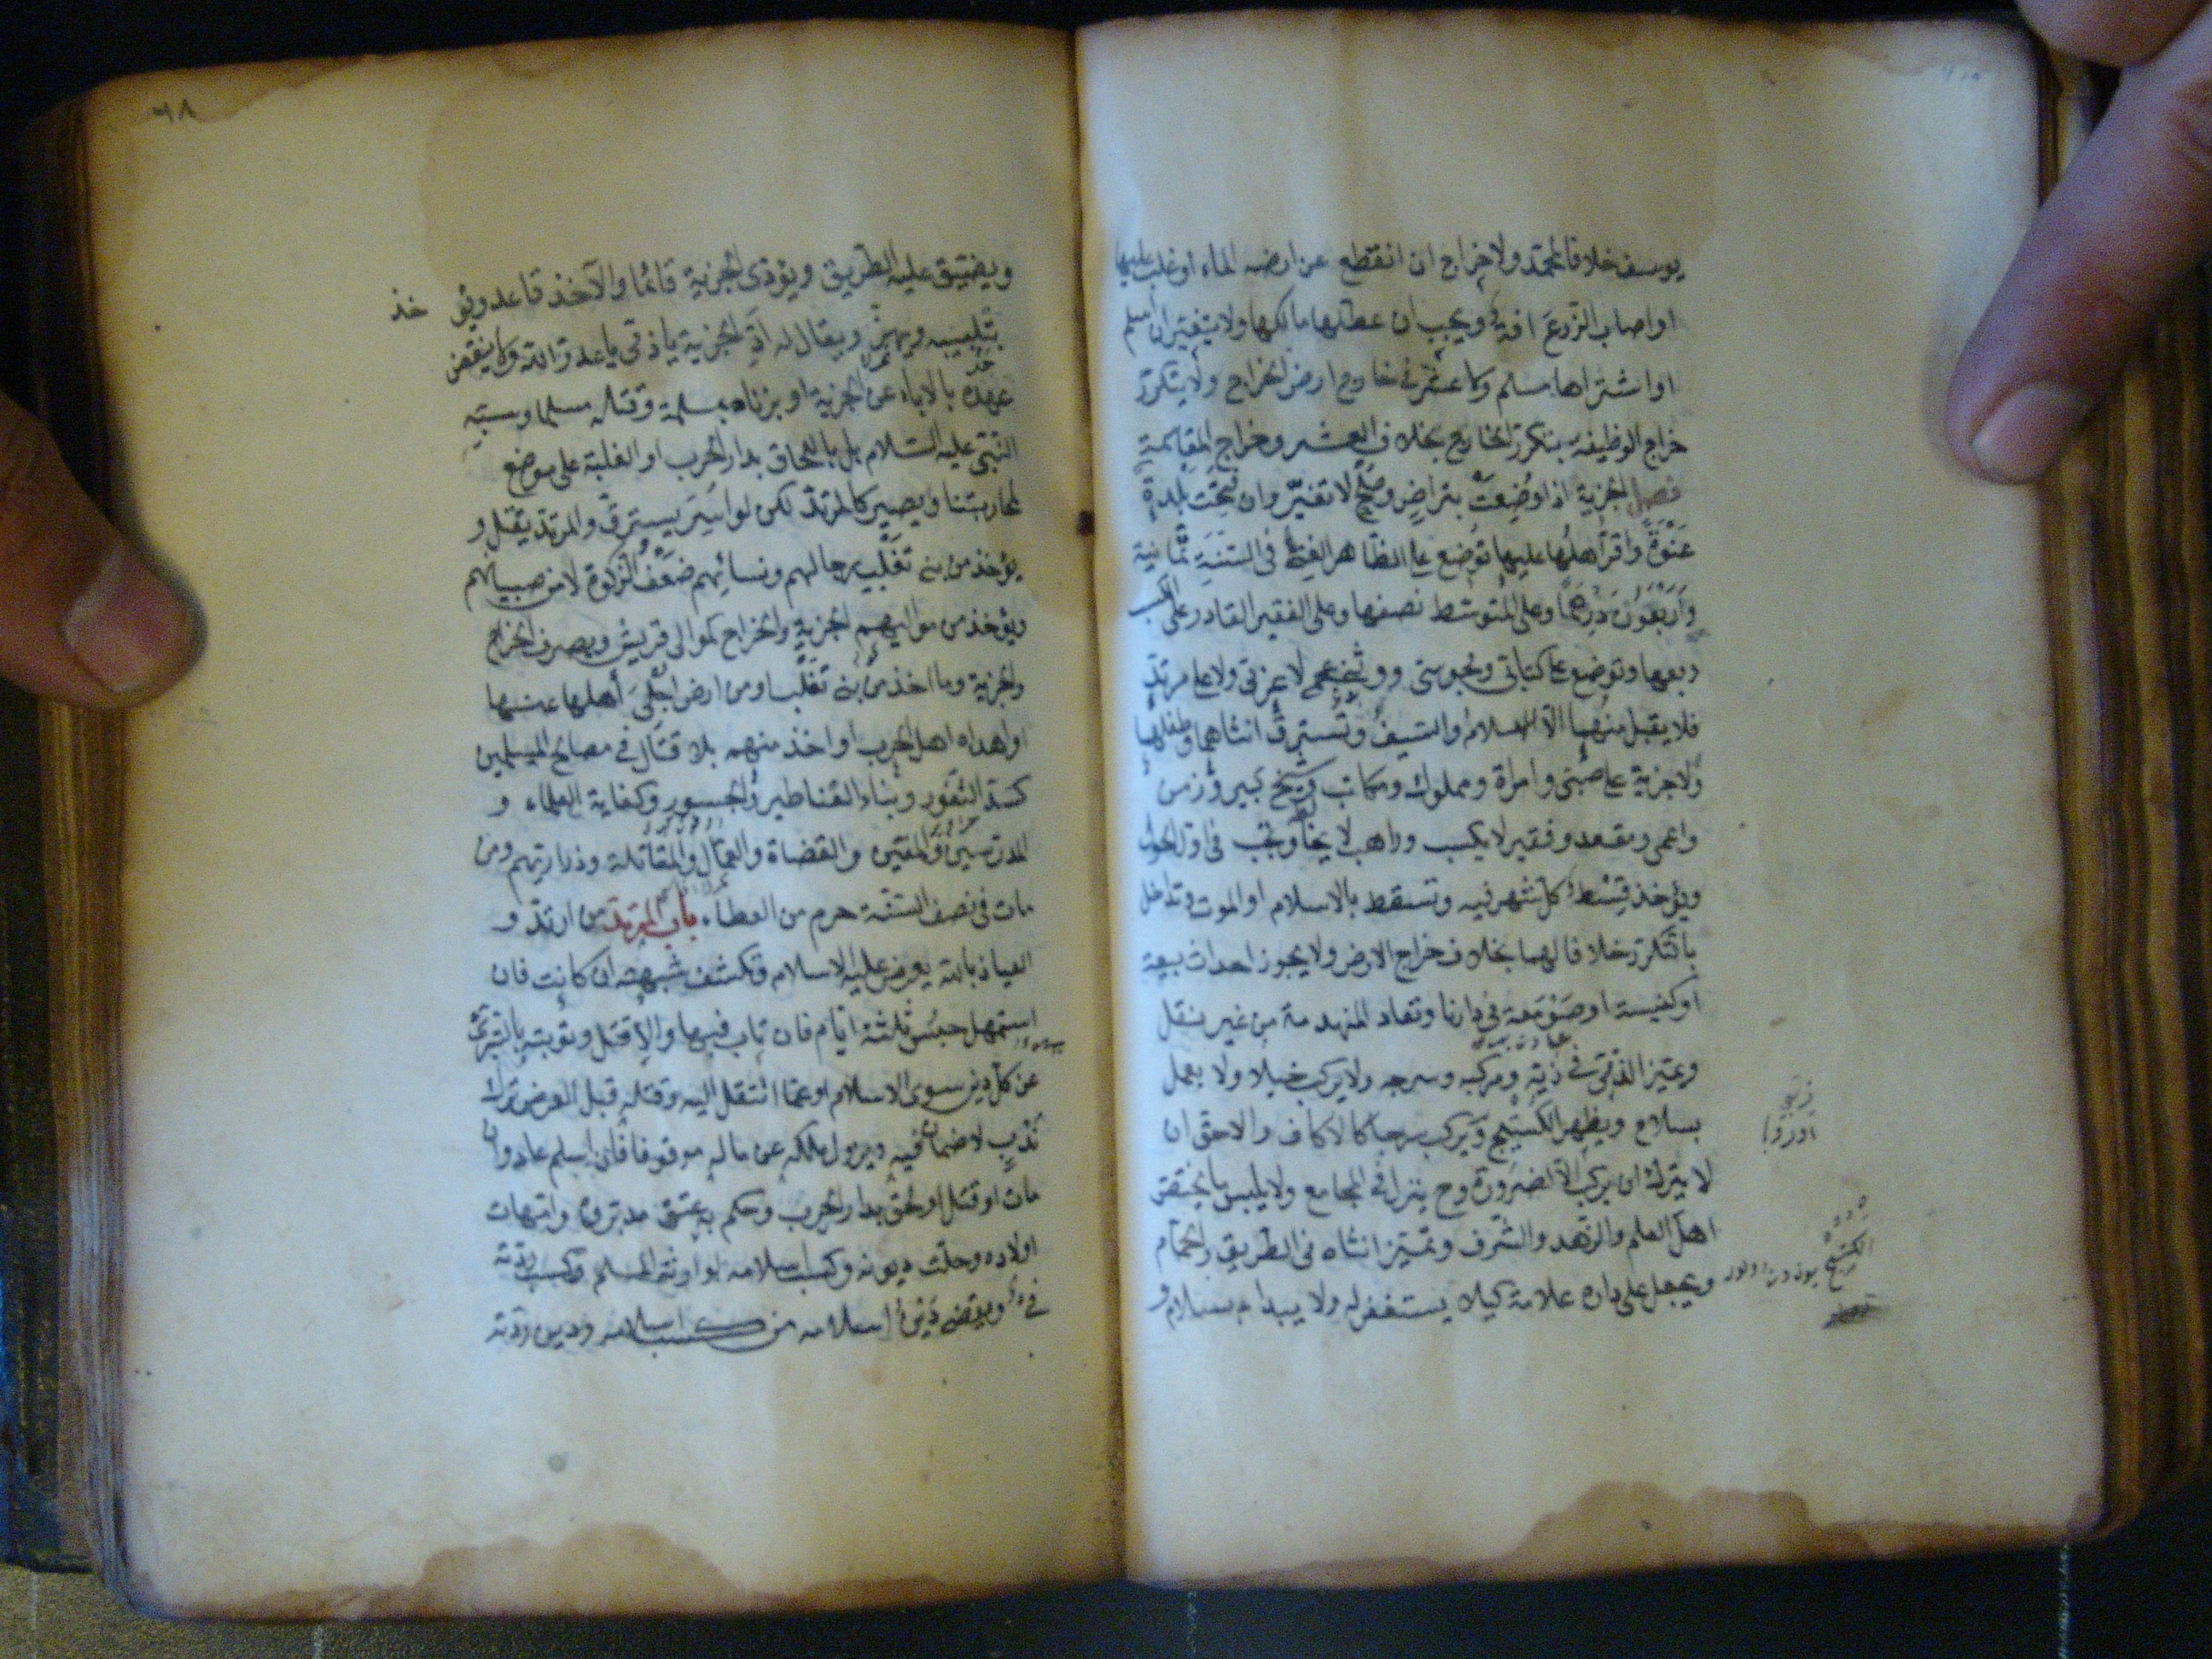 يوسف خلافا لمحمد ولا خراج ان انقطع عن ارضه الماء او غلب عليها
او اصاب الزرع افة ويجب ان عطلها مالكها ولا يتغير ان اسلم
او اشتراها مسلم ولا عشر في خارج ارض الخراج ولا يتكرر
خراج الوظيفة بتكرر الخارج بخلاف العشر وخراج المقاسمة
فصل الجزية اذا وُضِعَتْ بتراضٍ وصلح لا تغيّر وان فتحت بلدة
عَنْوَةً واقرّ اهلها عليها توضع على الظاهر الغنى في السَّنَةِ ثمانية
واربعون درهما وعلى المتوسّط نصفها وعلى الفقير القادر على الكسب
ربعها وتوضع على كتابي ومجوسي ووثني عجمي لا عربي ولا على مرتد
فلا يقبل منهما الا الاسلام والسيف وتُسترقّ انثاهما وطفلهما
ولا جزية على صبي وامرأة ومملوك ومكاتب وشيخ كبير وزمن
واعمى ومقعد وفقير لا يكسب وراهب لا يخالط وتجب في اول الحول
ويؤخذ قِسْط كل شهر فيه وتسقط بالاسلام او الموت وتداخل
بالتكرر خلافا لهما بخلاف خراج الارض ولا يجوز احداث بيعة
او كنيسة او صَوْمَعة في دارنا وتعاد المنهدمة من غير نقل
ويميّز الذمّي في زيّه ومركبه وسرجه ولا يركب خيلا ولا يعمل
بسلاح ويظهر الكستيج ويركب سرجا كالاكاف والاحق ان
لا يترك ان يركب الا لضرورة وح ينزل في المجامع ولا يلبس ما يختص
اهل العلم والزّهد والشّرف وتميّز انثاه في الطريق والحمّام
ويجعل على داره علامة كيلا يستغفر له ولا يبدأ بسلام و
الكستيج
٦٨
ويضيّق عليه الطريق ويؤدي الجزية قائما والآخذ قاعد ويؤ خذ
بتلبيبه ويهزّ ويقال له ادّ الجزية يا ذمّي يا عدوّ الله ولا ينقض
عهده بالاباء عن الجزية او بزناه بمسلمة وقتله مسلما وسبّه
النّبيّ عليه السّلام بل باللحاق بدار الحرب او الغلبة على موضع
لمحاربتنا ويصير كالمرتدّ لكن لو اسر يسترق والمرتدّ يقتل و
يؤخذ من بني تغلب رجالهم ونسائهم ضعف الزكوة لا من صبيانهم
ويؤخذ من مواليهم الجزية والخراج كموالي قريش ويصرف الخراج
والجزية وما اخذ من بني تغلب او من ارض اجلي اهلها عنها
او اهداه اهل الحرب او اخذ منهم بلا قتال في مصالح المسلمين
كسدّ الثّغور وبناء القناطير والجسور وكفاية العلماء و
المدرّسين والمفتين والقضاة والعمّال والمقاتلة وذراريهم ومن
مات في نصف السّنة حرم من العطاء باب المرتدّ من ارتدّ و
العياذ بالله يعرض عليه الاسلام وتكشف شبهته ان كانت فان
استمهل حبس ثلثة ايّام فان تاب فبها والّا قتل وتوبته بالتبري
عن كلّ دين سوى الاسلام او عمّا انتقل اليه وقتله قبل العرض ترك
نَدْبٍ لا ضمان فيه ويزول ملكه عن ماله موقوفا فان اسلم عاد وان
مات او قتل او لحق بدار الحرب وحكم به عتق مدبروه وامّهات
اولاده وحلّت ديونه وكسب اسلامه لوارثه المسلم وكسب ردّته
فيء ويقضى دين اسلامه من كسب اسلامه ودين ردّته